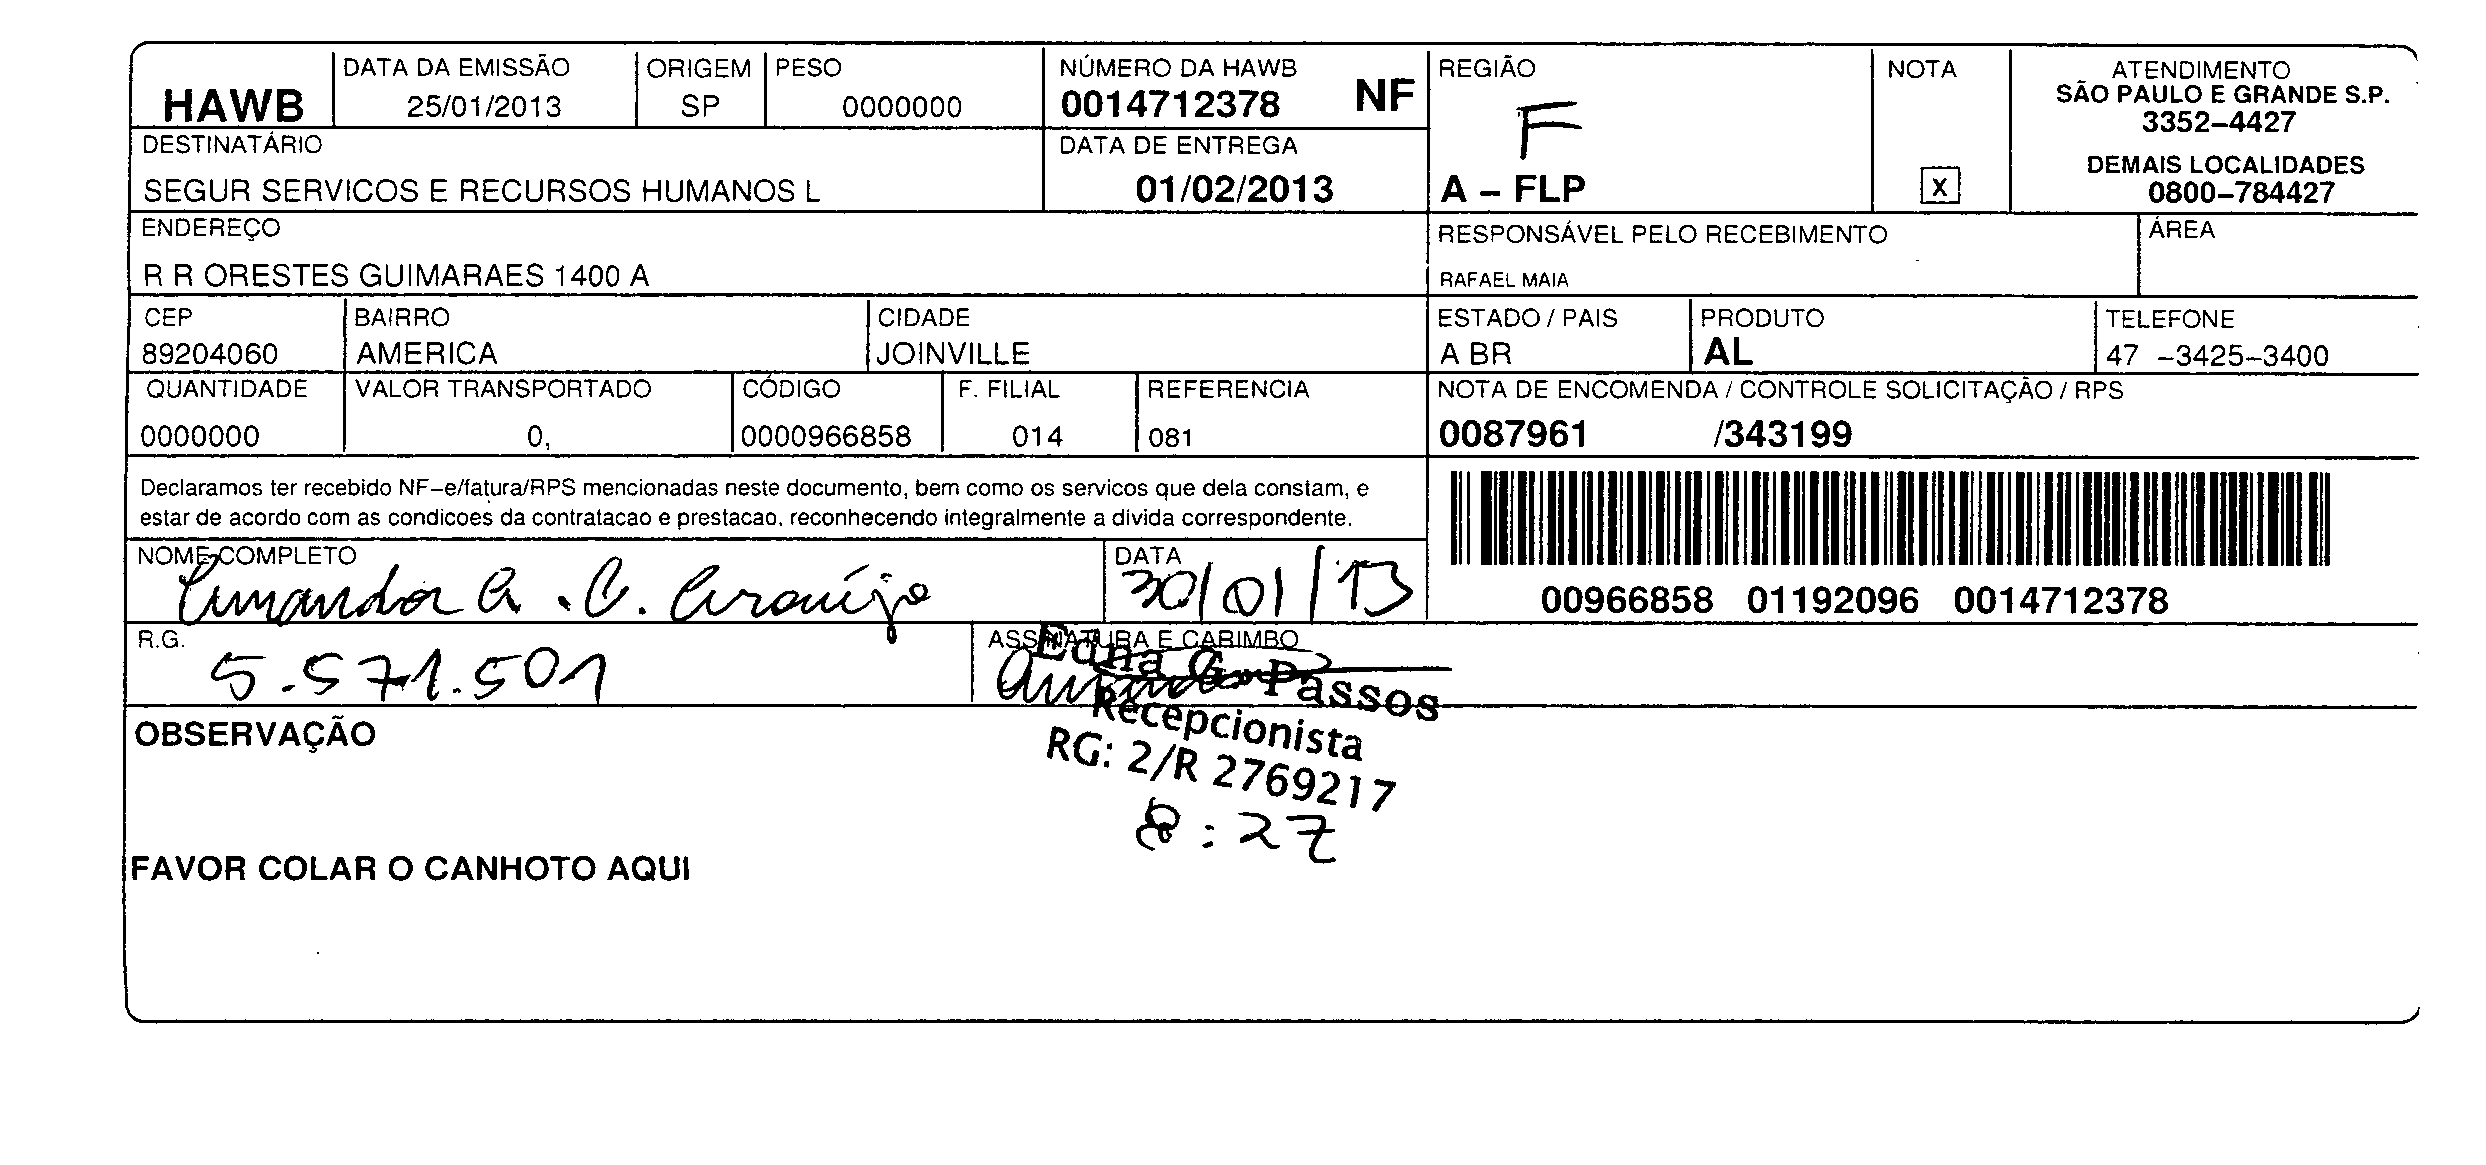 HAWB
DATA DA EMISSÃO
25/01/2013
ORIGEM
SP
PESO
0000000
NÚMERO DA HAWB
0014712378 NF
REGIÃO
F
A – FLP
NOTA
X
ATENDIMENTO
SÃO PAULO E GRANDE S.P.
3352–4427
DEMAIS LOCALIDADES
0800–784427
DESTINATÁRIO
SEGUR SERVICOS E RECURSOS HUMANOS L
DATA DE ENTREGA
01/02/2013
ENDEREÇO
R R ORESTES GUIMARAES 1400 A
RESPONSÁVEL PELO RECEBIMENTO
RAFAEL MAIA
ÁREA
CEP
89204060
BAIRRO
AMERICA
CIDADE
JOINVILLE
ESTADO / PAIS
A BR
PRODUTO
AL
TELEFONE
47 –3425–3400
QUANTIDADE
0000000
VALOR TRANSPORTADO
0,
CÓDIGO
0000966858
F. FILIAL
014
REFERENCIA
081
NOTA DE ENCOMENDA / CONTROLE SOLICITAÇÃO / RPS
0087961 /343199
Declaramos ter recebido NF–e/fatura/RPS mencionadas neste documento, bem como os servicos que dela constam, e
estar de acordo com as condicoes da contratacao e prestacao, reconhecendo integralmente a divida correspondente.
00966858 01192096 0014712378
NOME COMPLETO
Amanda A. C. Araújo
DATA
30/01/13
R.G.
5.571.501
ASSINATURA E CARIMBO
Amanda
Edna G. Passos
Recepcionista
RG: 2/R 2769217
8:27
OBSERVAÇÃO
FAVOR COLAR O CANHOTO AQUI